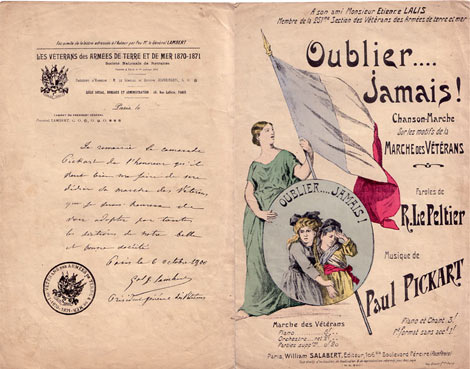 Fac-similé de la lettre adressée à l'Auteur par feu Mr. le Général LAMBERT
LES VÉTÉRANS des ARMÉES DE TERRE ET DE MER 1870-1871
Société Nationale de Retraites
SIÈGE SOCIAL, BUREAUX ET ADMINISTRATION
Paris le
CABINET DU PRÉSIDENT GÉNÉRAL
Général LAMBERT, G. O.
Je remercie le camarade
Pickart de l'honneur qu'il
veut bien me faire de me
dédier sa marche des Vétérans,
que je serai heureux de
voir adopter par toutes
les sections de notre belle
et bonne société
Paris le 6 octobre 1900
Gal Lambert
Président général des Vétérans
A son ami Monsieur Etienne LALIS
Membre de la Section des Vétérans des Armées de terre et mer
Oublier....
Jamais!
Chanson-Marche
Sur les motifs de la
MARCHE DES VÉTÉRANS
Paroles de
R. Le Peltier
Musique de
Paul PICKART
OUBLIER....JAMAIS!
Marche des Vétérans
Piano
Orchestre
Piano et Chant, 3f
Pt format sans acc! 1f
Paris, William SALABERT, Editeur, Boulevard Péreire